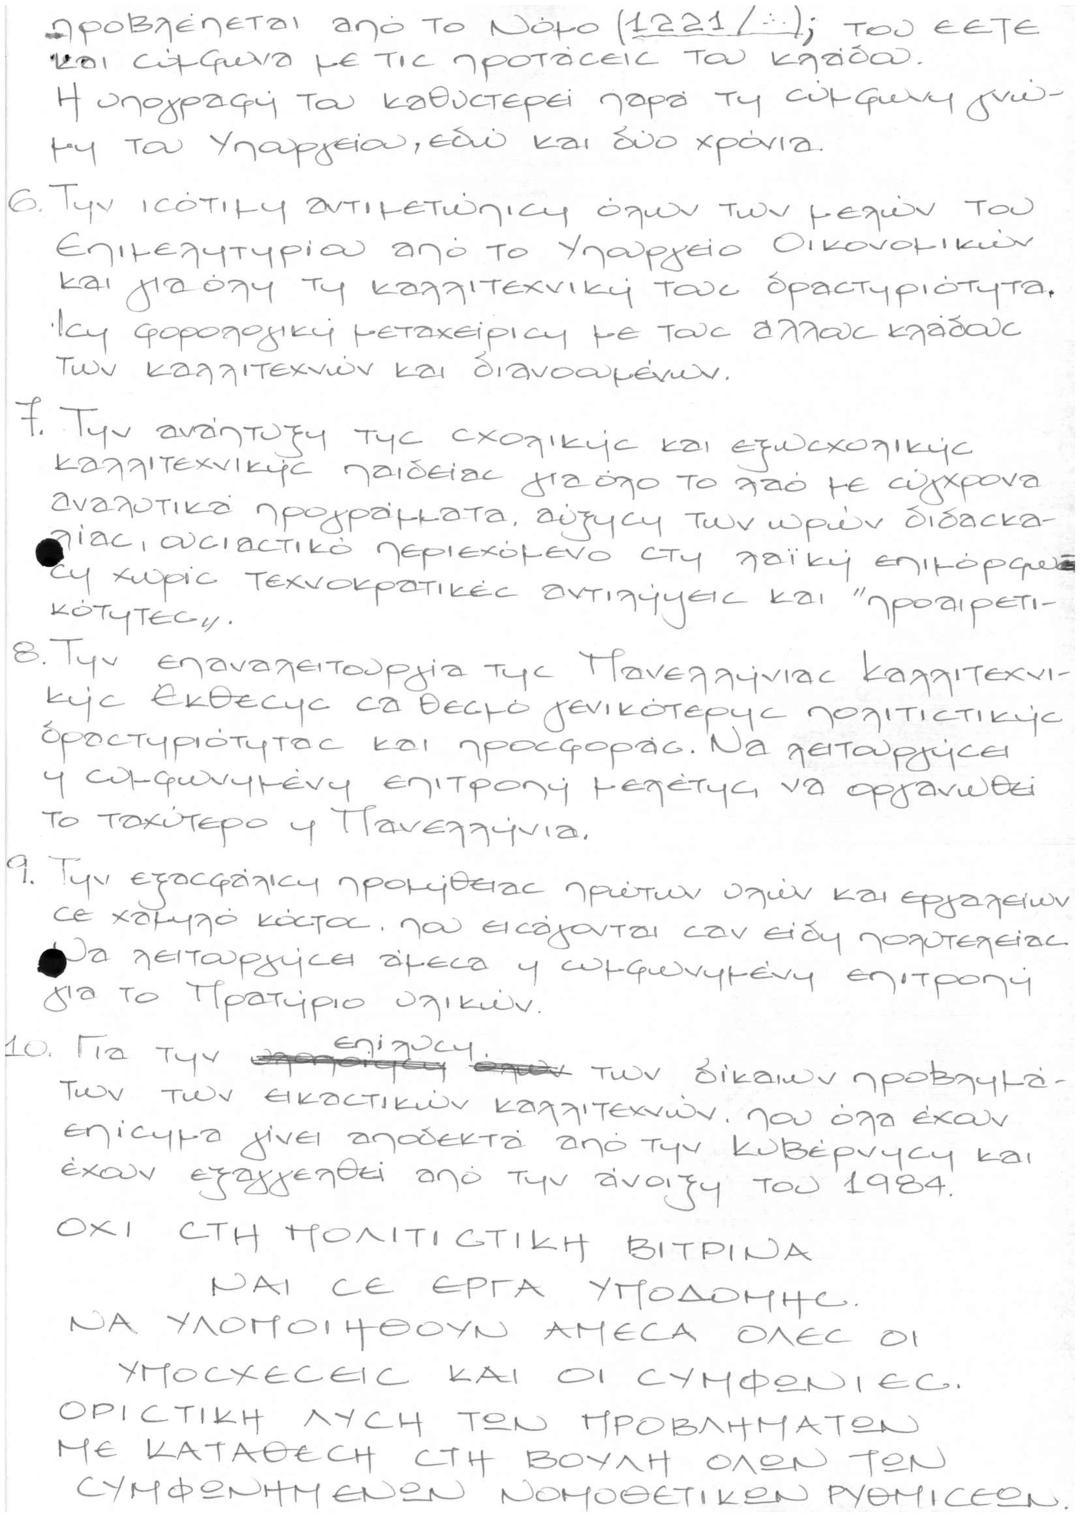 προβλέπεται από το Νόμο (1221/∴); του ΕΕΤΕ
και σύμφωνα με τις προτάσεις του κλάδου.
Η υπογραφή του καθυστερεί παρά τη σύμφωνη γνώ-
μη του Υπουργείου, εδώ και δύο χρόνια.
6. Την ισότιμη αντιμετώπιση όλων των μελών του
Επιμελητηρίου από το Υπουργείο Οικονομικών
και για όλη τη καλλιτεχνική τους δραστηριότητα.
Ίση φορολογική μεταχείριση με τους άλλους κλάδους
των καλλιτεχνών και διανοουμένων.
7. Την ανάπτυξη της σχολικής και εξωσχολικής
καλλιτεχνικής παιδείας για όλο το λαό με σύγχρονα
αναλυτικά προγράμματα, αύξηση των ωρών διδασκα-
λίας, ουσιαστικό περιεχόμενο στη λαϊκή επιμόρφω
ση χωρίς τεχνοκρατικές αντιλήψεις και "προαιρετι-
κότητες".
8. Την επαναλειτουργία της Πανελλήνιας Καλλιτεχνι-
κής Έκθεσης σα θεσμό γενικότερης πολιτιστικής
δραστηριότητας και προσφοράς. Να λειτουργήσει
η συμφωνημένη επιτροπή μελέτης, να οργανωθεί
το ταχύτερο η Πανελλήνια.
9. Την εξασφάλιση προμήθειας πρώτων υλών και εργαλείων
σε χαμηλό κόστος, που εισάγονται σαν είδη πολυτελείας.
Να λειτουργήσει άμεσα η συμφωνημένη επιτροπή
για το Πρατήριο υλικών.
10. Για την επίλυση των δίκαιων προβλημά-
των των εικαστικών καλλιτεχνών, που όλα έχουν
επίσημα γίνει αποδεκτά από την Κυβέρνηση και
έχουν εξαγγελθεί από την άνοιξη του 1984.
ΟΧΙ ΣΤΗ ΠΟΛΙΤΙΣΤΙΚΗ ΒΙΤΡΙΝΑ
ΝΑΙ ΣΕ ΕΡΓΑ ΥΠΟΔΟΜΗΣ.
ΝΑ ΥΛΟΠΟΙΗΘΟΥΝ ΑΜΕΣΑ ΟΛΕΣ ΟΙ
ΥΠΟΣΧΕΣΕΙΣ ΚΑΙ ΟΙ ΣΥΜΦΩΝΙΕΣ.
ΟΡΙΣΤΙΚΗ ΛΥΣΗ ΤΩΝ ΠΡΟΒΛΗΜΑΤΩΝ
ΜΕ ΚΑΤΑΘΕΣΗ ΣΤΗ ΒΟΥΛΗ ΟΛΩΝ ΤΩΝ
ΣΥΜΦΩΝΗΜΕΝΩΝ ΝΟΜΟΘΕΤΙΚΩΝ ΡΥΘΜΙΣΕΩΝ.